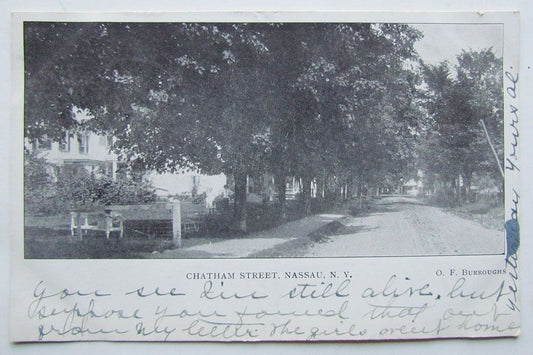 CHATHAM STREET, NASSAU, N. Y.
O. F. BURROUGHS
You see I'm still alive, but
suppose you found that out
from my letter. The girls went home
yesterday yours al.